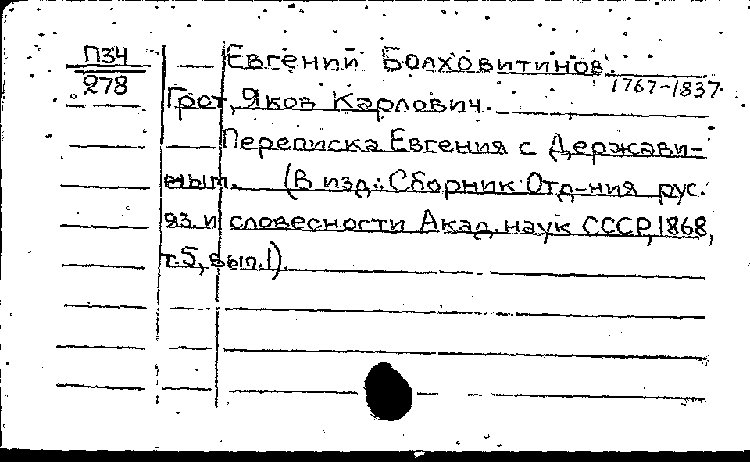 П34
278
Евгений Болховитинов.
1767-1837.
Грот, Яков Карлович.
Переписка Евгения с Держави-
ным. (В изд.: Сборник Отд-ния рус.
яз. и словесности Акад. наук СССР, 1868,
т.5, вып.1).